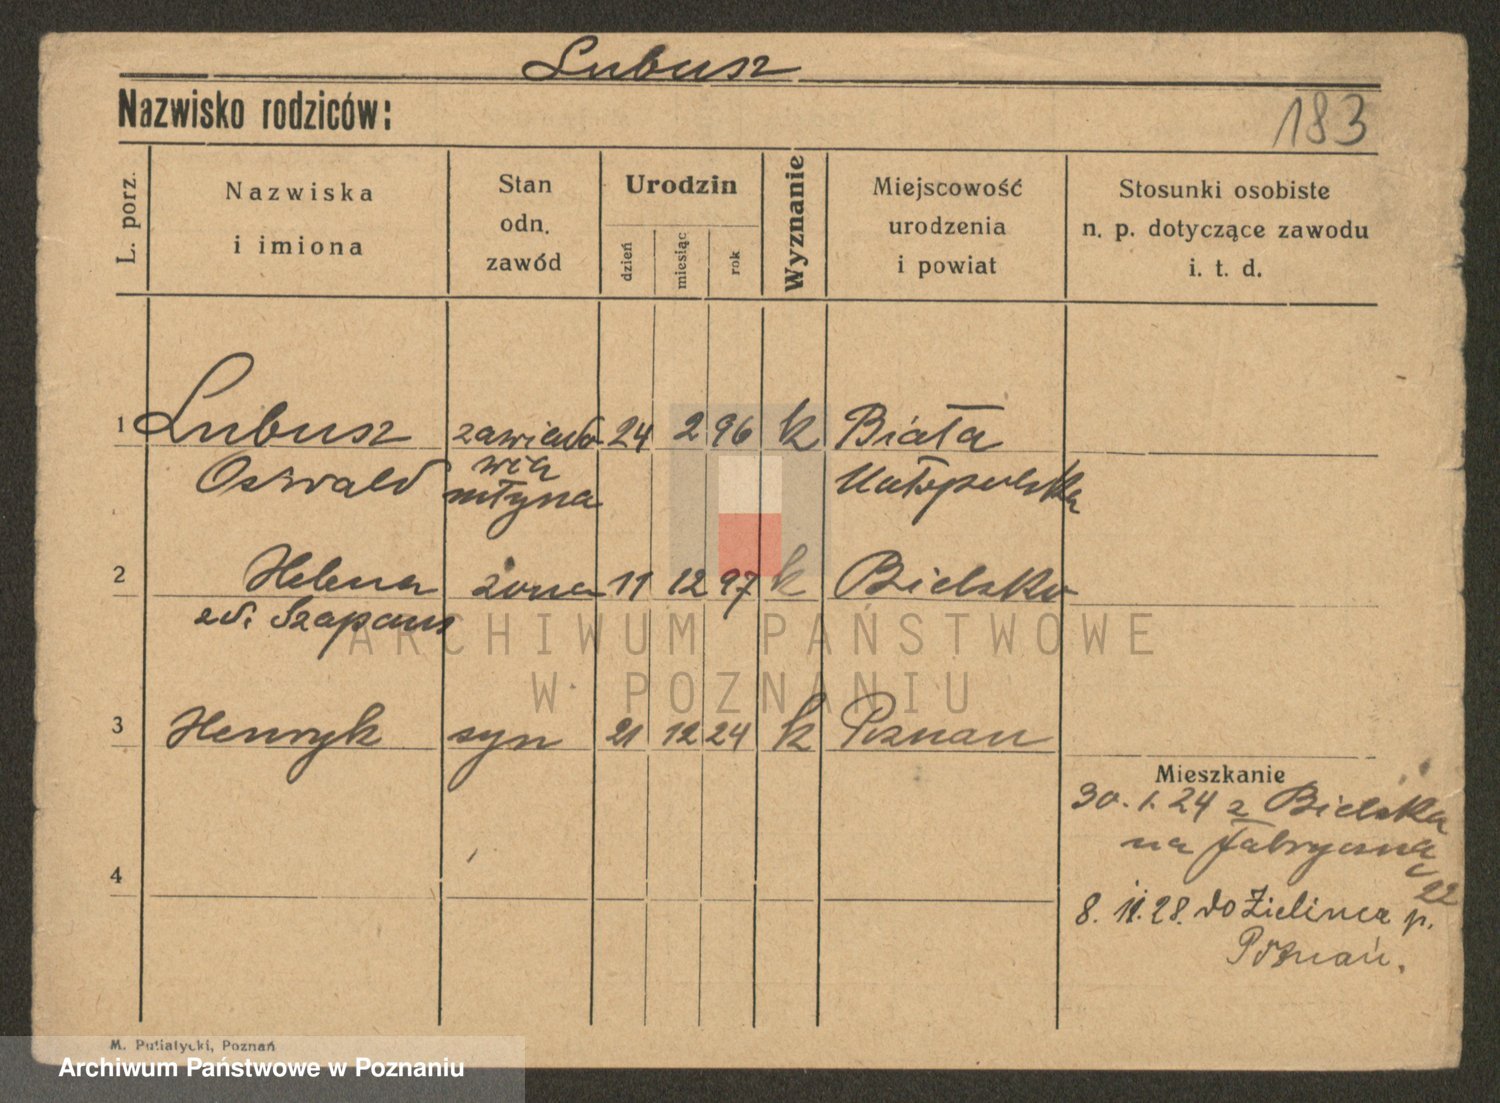 Lubusz
Nazwisko rodziców:
183
L. porz.
Nazwiska
i imiona
Stan
odn.
zawód
Urodzin
dzień
miesiąc
rok
Wyznanie
Miejscowość
urodzenia
i powiat
Stosunki osobiste
n. p. dotyczące zawodu
i. t. d.
1 Lubusz zawiado 24 2 96 k Biała
Oswald wca Małopolska
młyna
2 Helena żona 11 12 97 k Bielsko
zd. Szapans
ARCHIWUM PAŃSTWOWE
W POZNANIU
3 Henryk syn 21 12 24 k Poznań
Mieszkanie
30. 1. 24 z Bielska
na Fabryczną
22
4
8. 11. 28. do Zielińca p.
Poznań.
M. Putiatycki, Poznań
Archiwum Państwowe w Poznaniu